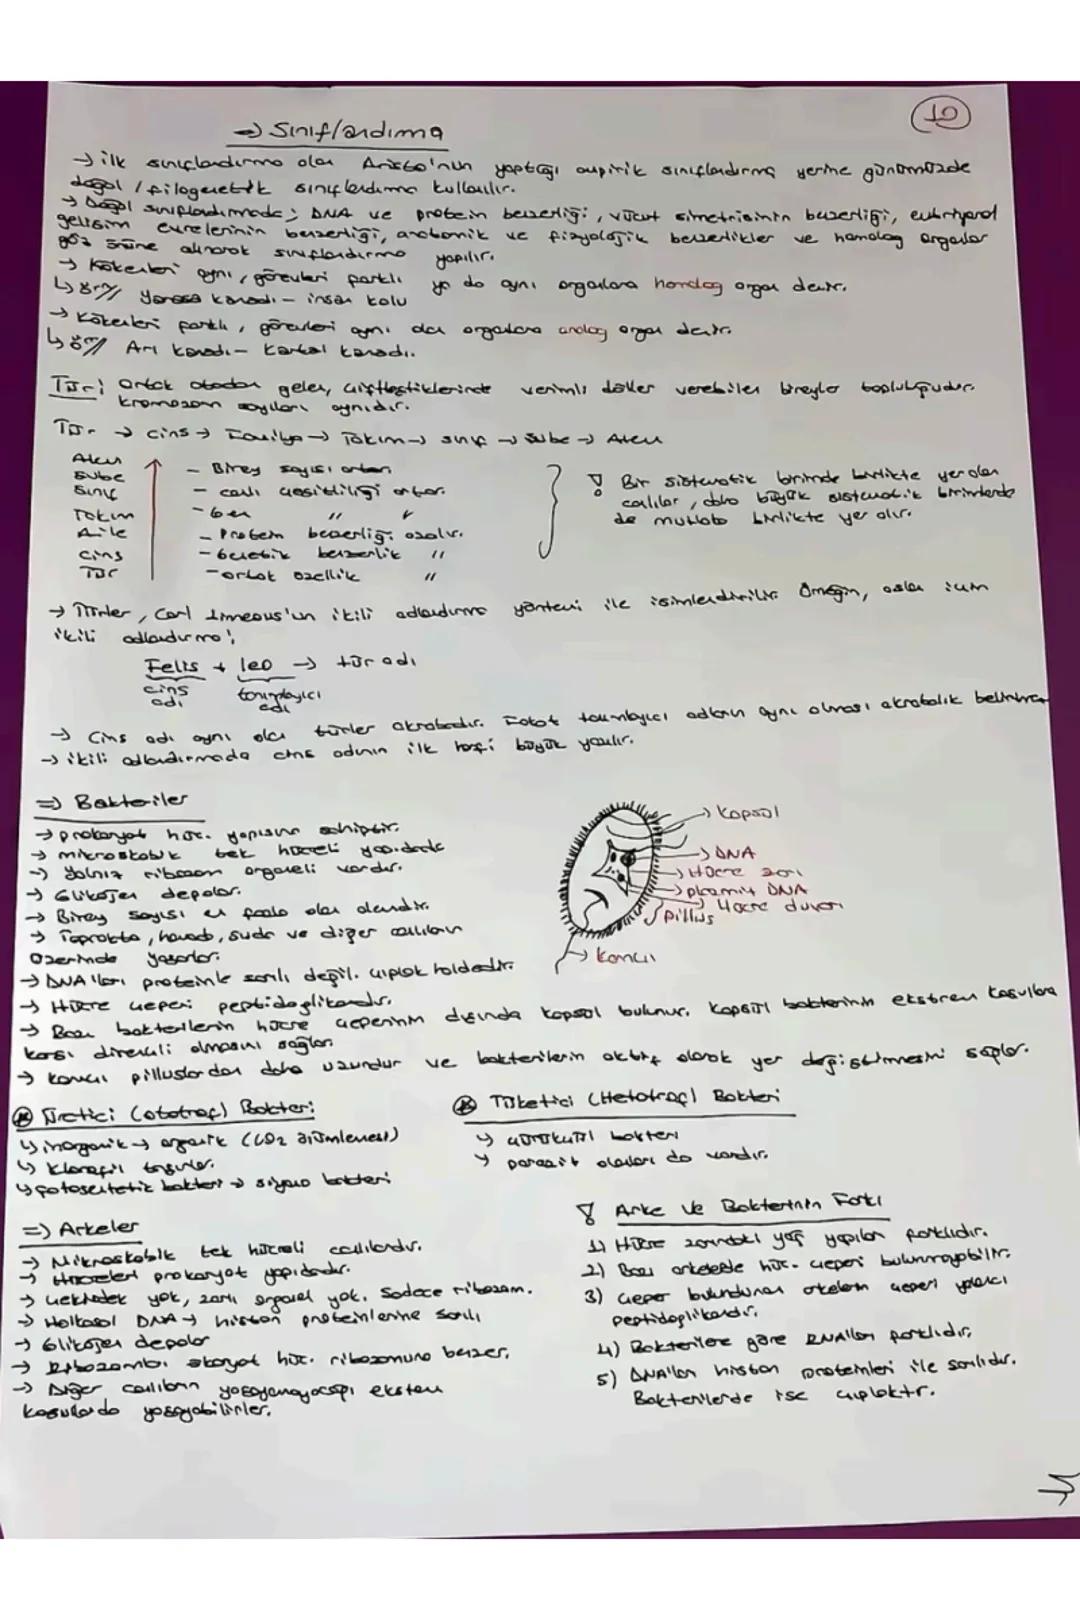 10
→ Sınıflandırma
→ ilk sınıflandırma olan Aristo'nun yaptığı ampirik sınıflandırma yerine günümüzde
doğal / filogenetik sınıflandırma kullanılır.
→ Doğal sınıflandırmada; DNA ve protein benzerliği, vücut simetrisinin benzerliği, embriyonal
gelişim evrelerinin benzerliği, anatomik ve fizyolojik benzerlikler ve homolog organlar
göz önüne alınarak sınıflandırma yapılır.
→ Kökenleri aynı, görevleri farklı ya da aynı organlara homolog organ denir.
↳ örn// Yarasa kanadı - insan kolu
→ Kökenleri farklı, görevleri aynı olan organlara analog organ denir.
↳ örn// Arı kanadı - Kartal kanadı.
Tür: Ortak atadan gelen, çiftleştiklerinde verimli döller verebilen bireyler topluluğudur.
Kromozom sayıları aynıdır.
Tür → Cins → Familya → Takım → Sınıf → Şube → Alem
Alem
Şube
Sınıf
Takım
Aile
Cins
Tür
- Birey sayısı artar.
- canlı çeşitliliği artar.
- Gen " "
- Protein benzerliği azalır.
- Genetik benzerlik "
- ortak özellik "
! Bir sistematik birimde birlikte yer alan
canlılar, daha büyük sistematik birimlerde
de mutlaka birlikte yer alır.
→ Türler, Carl Linneaus'un ikili adlandırma yöntemi ile isimlendirilir. Örneğin, aslan için
ikili adlandırma;
Felis + leo → tür adı
cins adı
tanımlayıcı adı
→ Cins adı aynı olan türler akrabadır. Fakat tanımlayıcı adların aynı olması akrabalık belirtmez
→ ikili adlandırmada cins adının ilk harfi büyük yazılır.
⇒ Bakteriler
→ prokaryot hüc. yapısına sahiptir.
→ mikroskobik tek hücreli yapıdadır
→ Yalnız ribozom organeli vardır.
→ Glikojen depolar.
→ Birey sayısı en fazla olan alemdir.
→ Toprakta, havada, suda ve diğer canlıların
üzerinde yaşarlar.
→ DNA'ları proteinle sarılı değil. Çıplak haldedir.
→ Hücre çeperi peptidoglikandır.
→ Bazı bakterilerin hücre çeperinin dışında kapsül bulunur. Kapsül bakterinin ekstrem koşullara
karşı dirençli olmasını sağlar
→ Kamçı pilluslardan daha uzundur ve bakterilerin aktif olarak yer değiştirmesini sağlar.
→ Kapsül
→ DNA
→ Hücre zarı
→ plazmit DNA
→ Hücre duvarı
pillus
→ Kamçı
⊛ Üretici (ototrof) Bakteri
↳ inorganik → organik (CO2 özümlemesi)
↳ Klorofil taşırlar.
↳ fotosentetik bakteri → siyano bakteri
⊛ Tüketici (Hetotrof) Bakteri
↳ çürükçül bakteri
↳ parazit olanları da vardır.
⇒ Arkeler
→ Mikroskobik tek hücreli canlılardır.
→ Hücreleri prokaryot yapıdadır.
→ Çekirdek yok, zarlı organel yok. Sadece ribozom.
→ Halkasal DNA → histon proteinlerine sarılı
→ Glikojen depolar
→ Ribozomları ökaryot hüc. ribozomuna benzer.
→ Diğer canlıların yaşayamayacağı ekstrem
koşullarda yaşayabilirler.
! Arke ve Bakterinin Farkı
1) Hücre zarındaki yağ yapıları farklıdır.
2) Bazı arkelerde hüc. çeperi bulunmayabilir.
3) Çeper bulunduran arkelerin çeperi yalancı
peptidoglikandır.
4) Bakterilere göre RNA'ları farklıdır.
5) DNA'ları histon proteinleri ile sarılıdır.
Bakterilerde ise çıplaktır.